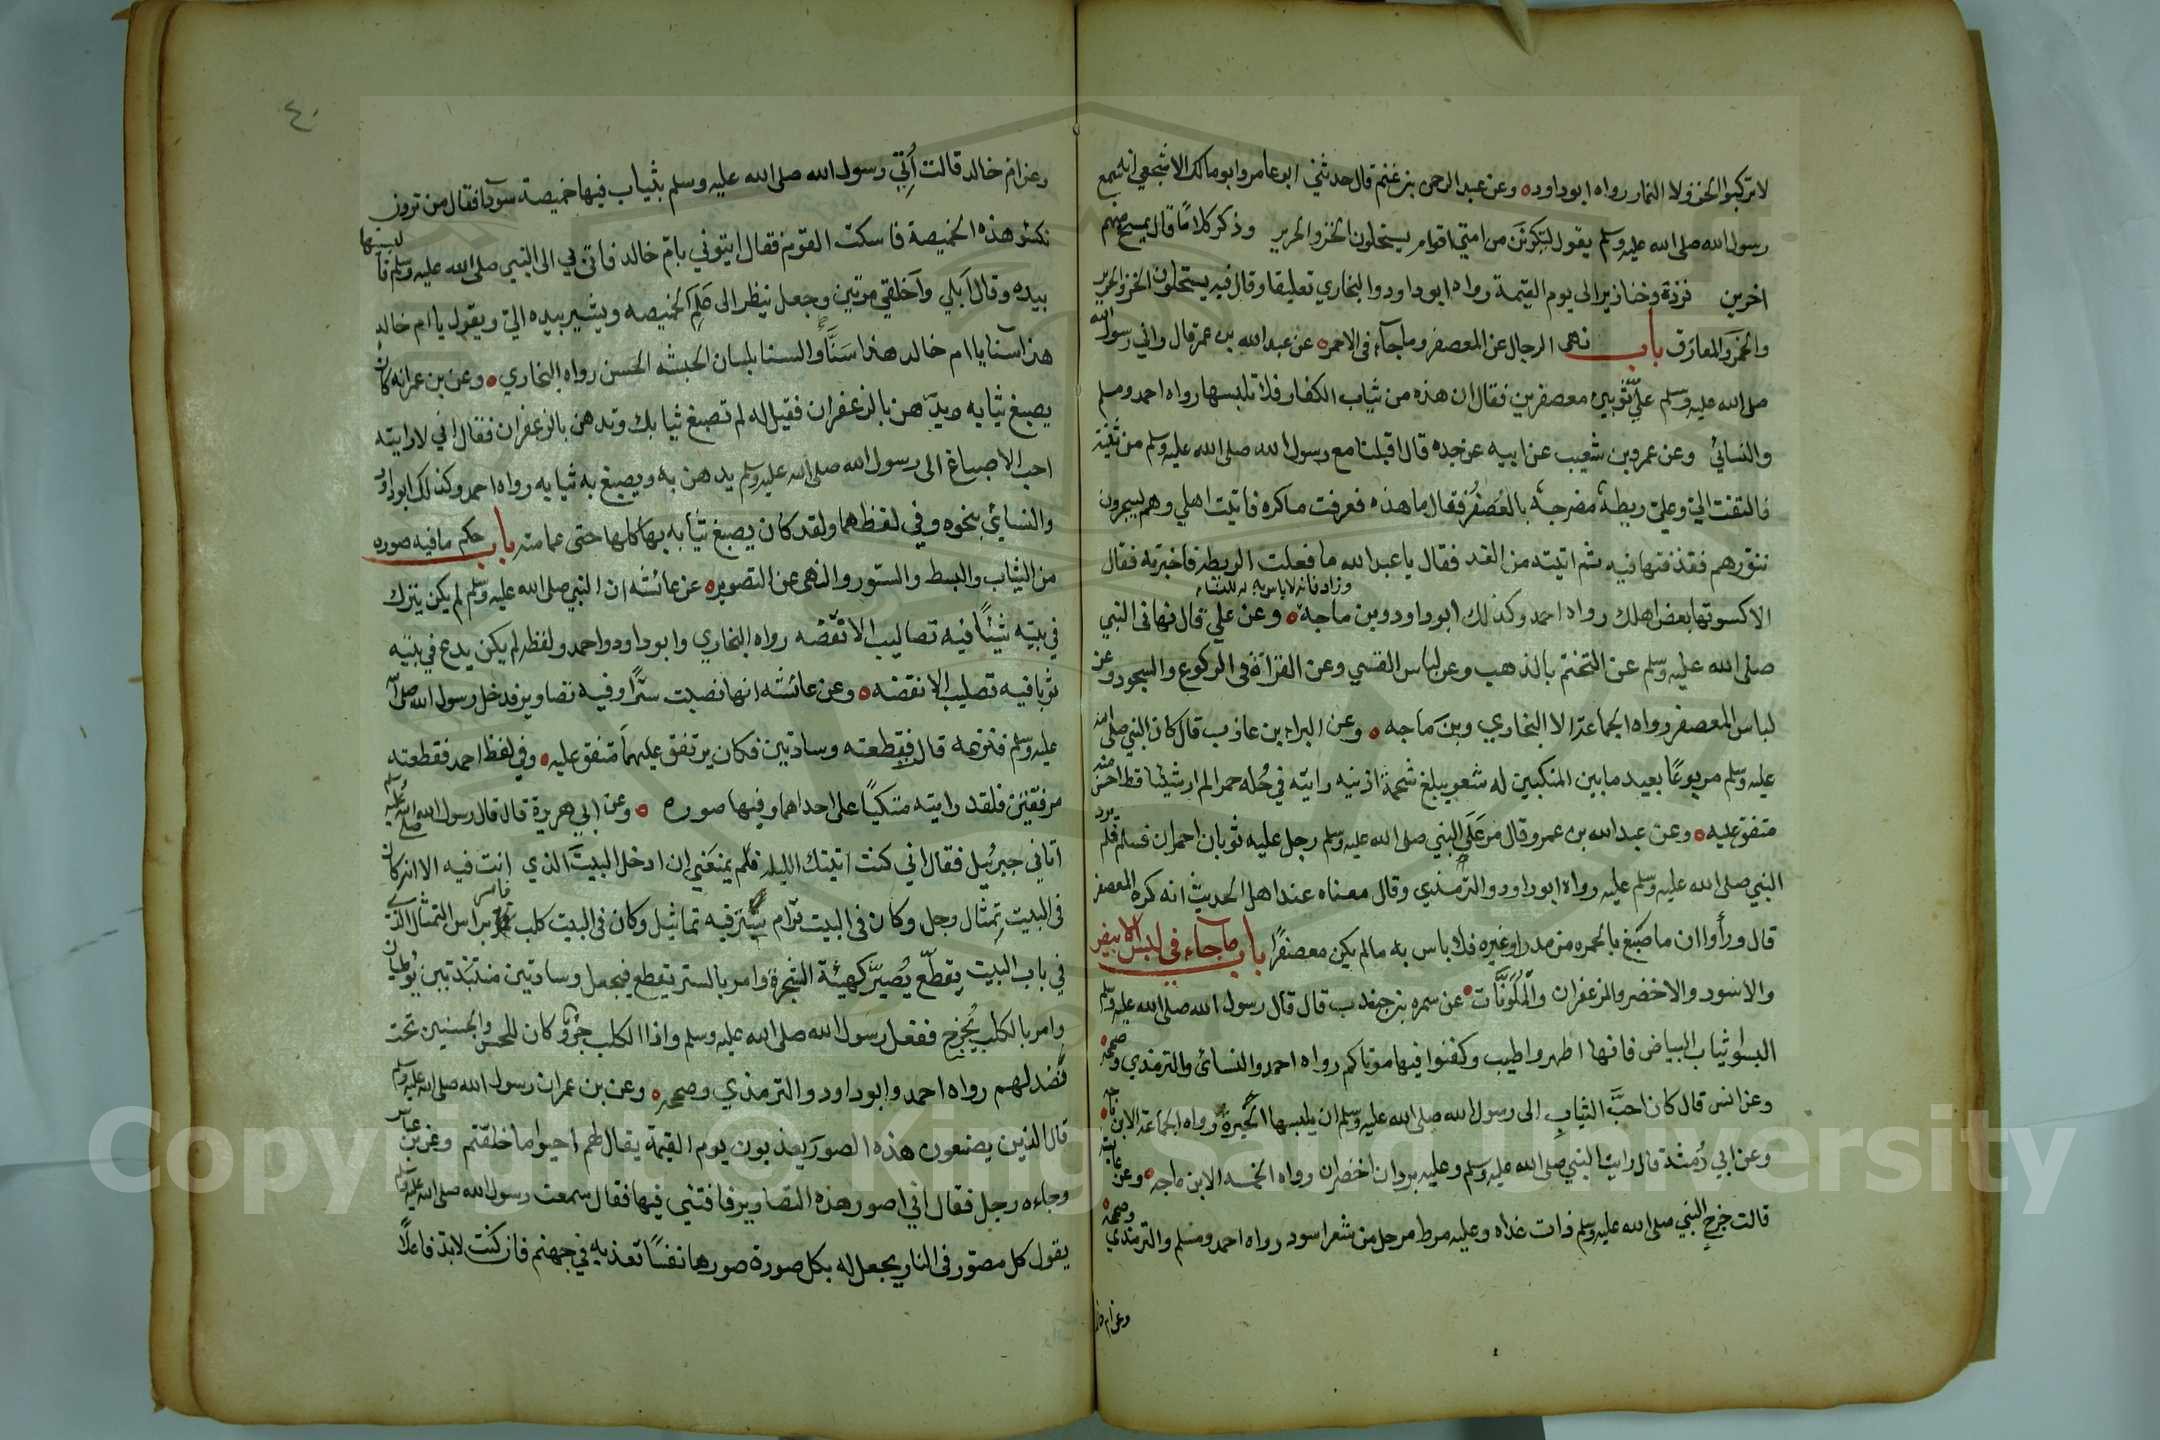 لا تركبوا الخز ولا النمار رواه ابو داود ه وعن عبد الرحمن بن غنم قال حدثني ابو عامر وابو مالك الاشجعي انه سمع
رسول الله صلى الله عليه وسلم يقول ليكونن من امتي اقوام يستحلون الخز والحرير وذكر كلاما قال يمسخ منهم
اخرين قردة وخنازير الى يوم القيمة رواه ابو داود والبخاري تعليقا وقال فيه يستحلون الخز والحرير
والخمر والمعازف باب نهى الرجال عن المعصفر وما جآء في الاحمر ه عن عبد الله بن عمر قال رآني رسول الله
صلى الله عليه وسلم عليّ ثوبين معصفرين فقال ان هذه من ثياب الكفار فلا تلبسها رواه احمد ومسلم
والنسائي وعن عمرو بن شعيب عن ابيه عن جده قال اقبلنا مع رسول الله صلى الله عليه وسلم من ثنية
فالتفت الي وعليّ ريطة مضرجة بالعُصفُر فقال ما هذه فعرفت ما كره فاتيت اهلي وهم يسجرون
تنورهم فقذفتها فيه ثم اتيته من الغد فقال يا عبد الله ما فعلت الريطة فاخبرته فقال
وزاد فانه لا باس به للنساء
الا كسوتها بعض اهلك رواه احمد وكذلك ابو داود وبن ماجه ه وعن علي قال نهاني النبي
صلى الله عليه وسلم عن التختم بالذهب وعن لباس القسي وعن القرآة في الركوع والسجود وعن
لباس المعصفر رواه الجماعة الا البخاري وبن ماجه ه وعن البراء بن عازب قال كان النبي صلى الله
عليه وسلم مربوعًا بعيد ما بين المنكبين له شعر يبلغ شحمة اذنيه رايته في حُله حمرا لم ار شيئا قط احسن منه
متفق عليه ه وعن عبد الله بن عمرو قال مر على النبي صلى الله عليه وسلم رجل عليه ثوبان احمران فسلم فلم يرد
النبي صلى الله عليه وسلم عليه رواه ابو داود والترمذي وقال معناه عند اهل الحديث انه كره المعصفر
قال وراوا ان ما صبغ بالحمره من مدر او غيره فلا باس به ما لم يكن معصفرًا باب ما جآء في لبس الابيض
والاسود والاخضر والمزعفران والملونات ه عن سمره بن جندب قال قال رسول الله صلى الله عليه وسلم
البسوا ثياب البياض فانها اطهر واطيب وكفنوا فيها موتاكم رواه احمد والنسائي والترمذي وصححه ه
وعن انس قال كان احبَّ الثيابِ الى رسول الله صلى الله عليه وسلم ان يلبسها الحِبَرة رواه الجماعة الا بن ماجه ه
وعن ابي رُمثة قال رايت النبي صلى الله عليه وسلم وعليه بردان اخضران رواه الخمسه الا بن ماجه ه وعن عايشة
قالت خرج النبي صلى الله عليه وسلم ذات غداه وعليه مرط مرحل من شعر اسود رواه احمد ومسلم والترمذي وصححه ه
وعن ام خا
٤٠
وعن ام خالد قالت أُتي رسول الله صلى الله عليه وسلم بثياب فيها خميصة سودآ فقال من ترون
نكسو هذه الخميصة فاسكت القوم فقال ايتوني بامّ خالد فاتى بي الى النبي صلى الله عليه وسلم فالبسنيها
بيده وقال اَبلي واَخلقي مرتين وجعل ينظر الى عَلَمِ الخميصه ويشير بيده اليّ ويقول يا ام خالد
هذا سنا يا ام خالد هذا سَنَا والسنا بلسان الحبشه الحسن رواه البخاري ه وعن بن عمر انه كان
يصبغ ثيابه ويدّهن بالزعفران فقيل له لم تصبغ ثيابك وتدهن بالزعفران فقال اني لا رايته
احب الاصباغ الى رسول الله صلى الله عليه وسلم يدهن به ويصبغ به ثيابه رواه احمد وكذلك ابو داود
والنسائي بنحوه وفي لفظهما ولقد كان يصبغ ثيابه بها كلها حتى عمامته باب حكم ما فيه صوره
من الثياب والبسط والستور والنهى عن التصوير ه عن عائشه ان النبي صلى الله عليه وسلم لم يكن يترك
في بيته شيئًا فيه تصاليب الا نقضه رواه البخاري وابو داود واحمد ولفظه لم يكن يدع في بيته
ثوبا فيه تصليب الا نقضه ه وعن عائشه انها نصبت سترًا وفيه تصاوير فدخل رسول الله صلى الله
عليه وسلم فنزعه قال فقطعته وسادتين فكان يرتفق عليهما متفق عليه ه وفي لفظ احمد فقطعته
مرفقتين فلقد رايته متكيًا على احداهما وفيها صوره ه وعن ابي هريرة قال قال رسول الله صلى الله عليه وسلم
اتاني جبرئيل فقال اني كنت اتيتك الليله فلم يمنعني ان ادخل البيت الذي انت فيه الا انه كان
في البيت تمثال رجل وكان في البيت قرام ستر فيه تماثيل وكان في البيت كلب فامر براس التمثال الذي
في باب البيت يقطّع يُصيَّر كهيئة الشجرة وامر بالستر يقطع فيجعل وسادتين منتبذتين يُوطيان
وامر بالكلب يُخرج ففعل رسول الله صلى الله عليه وسلم واذا الكلب جرو كان للحسن والحسين تحت
نَضَد لهم رواه احمد وابو داود والترمذي وصححه ه وعن بن عمر ان رسول الله صلى الله عليه وسلم
قال الذين يصنعون هذه الصور يعذبون يوم القيمة يقال لهم احيوا ما خلقتم وعن بن عباس
وجاءه رجل فقال اني اصور هذه التصاوير فافتني فيها فقال سمعت رسول الله صلى الله عليه وسلم
يقول كل مصوّر في النار يجعل له بكل صورة صورها نفسًا تعذبه في جهنم فان كنت لا بد فاعلًا
Copyright © King Saud University